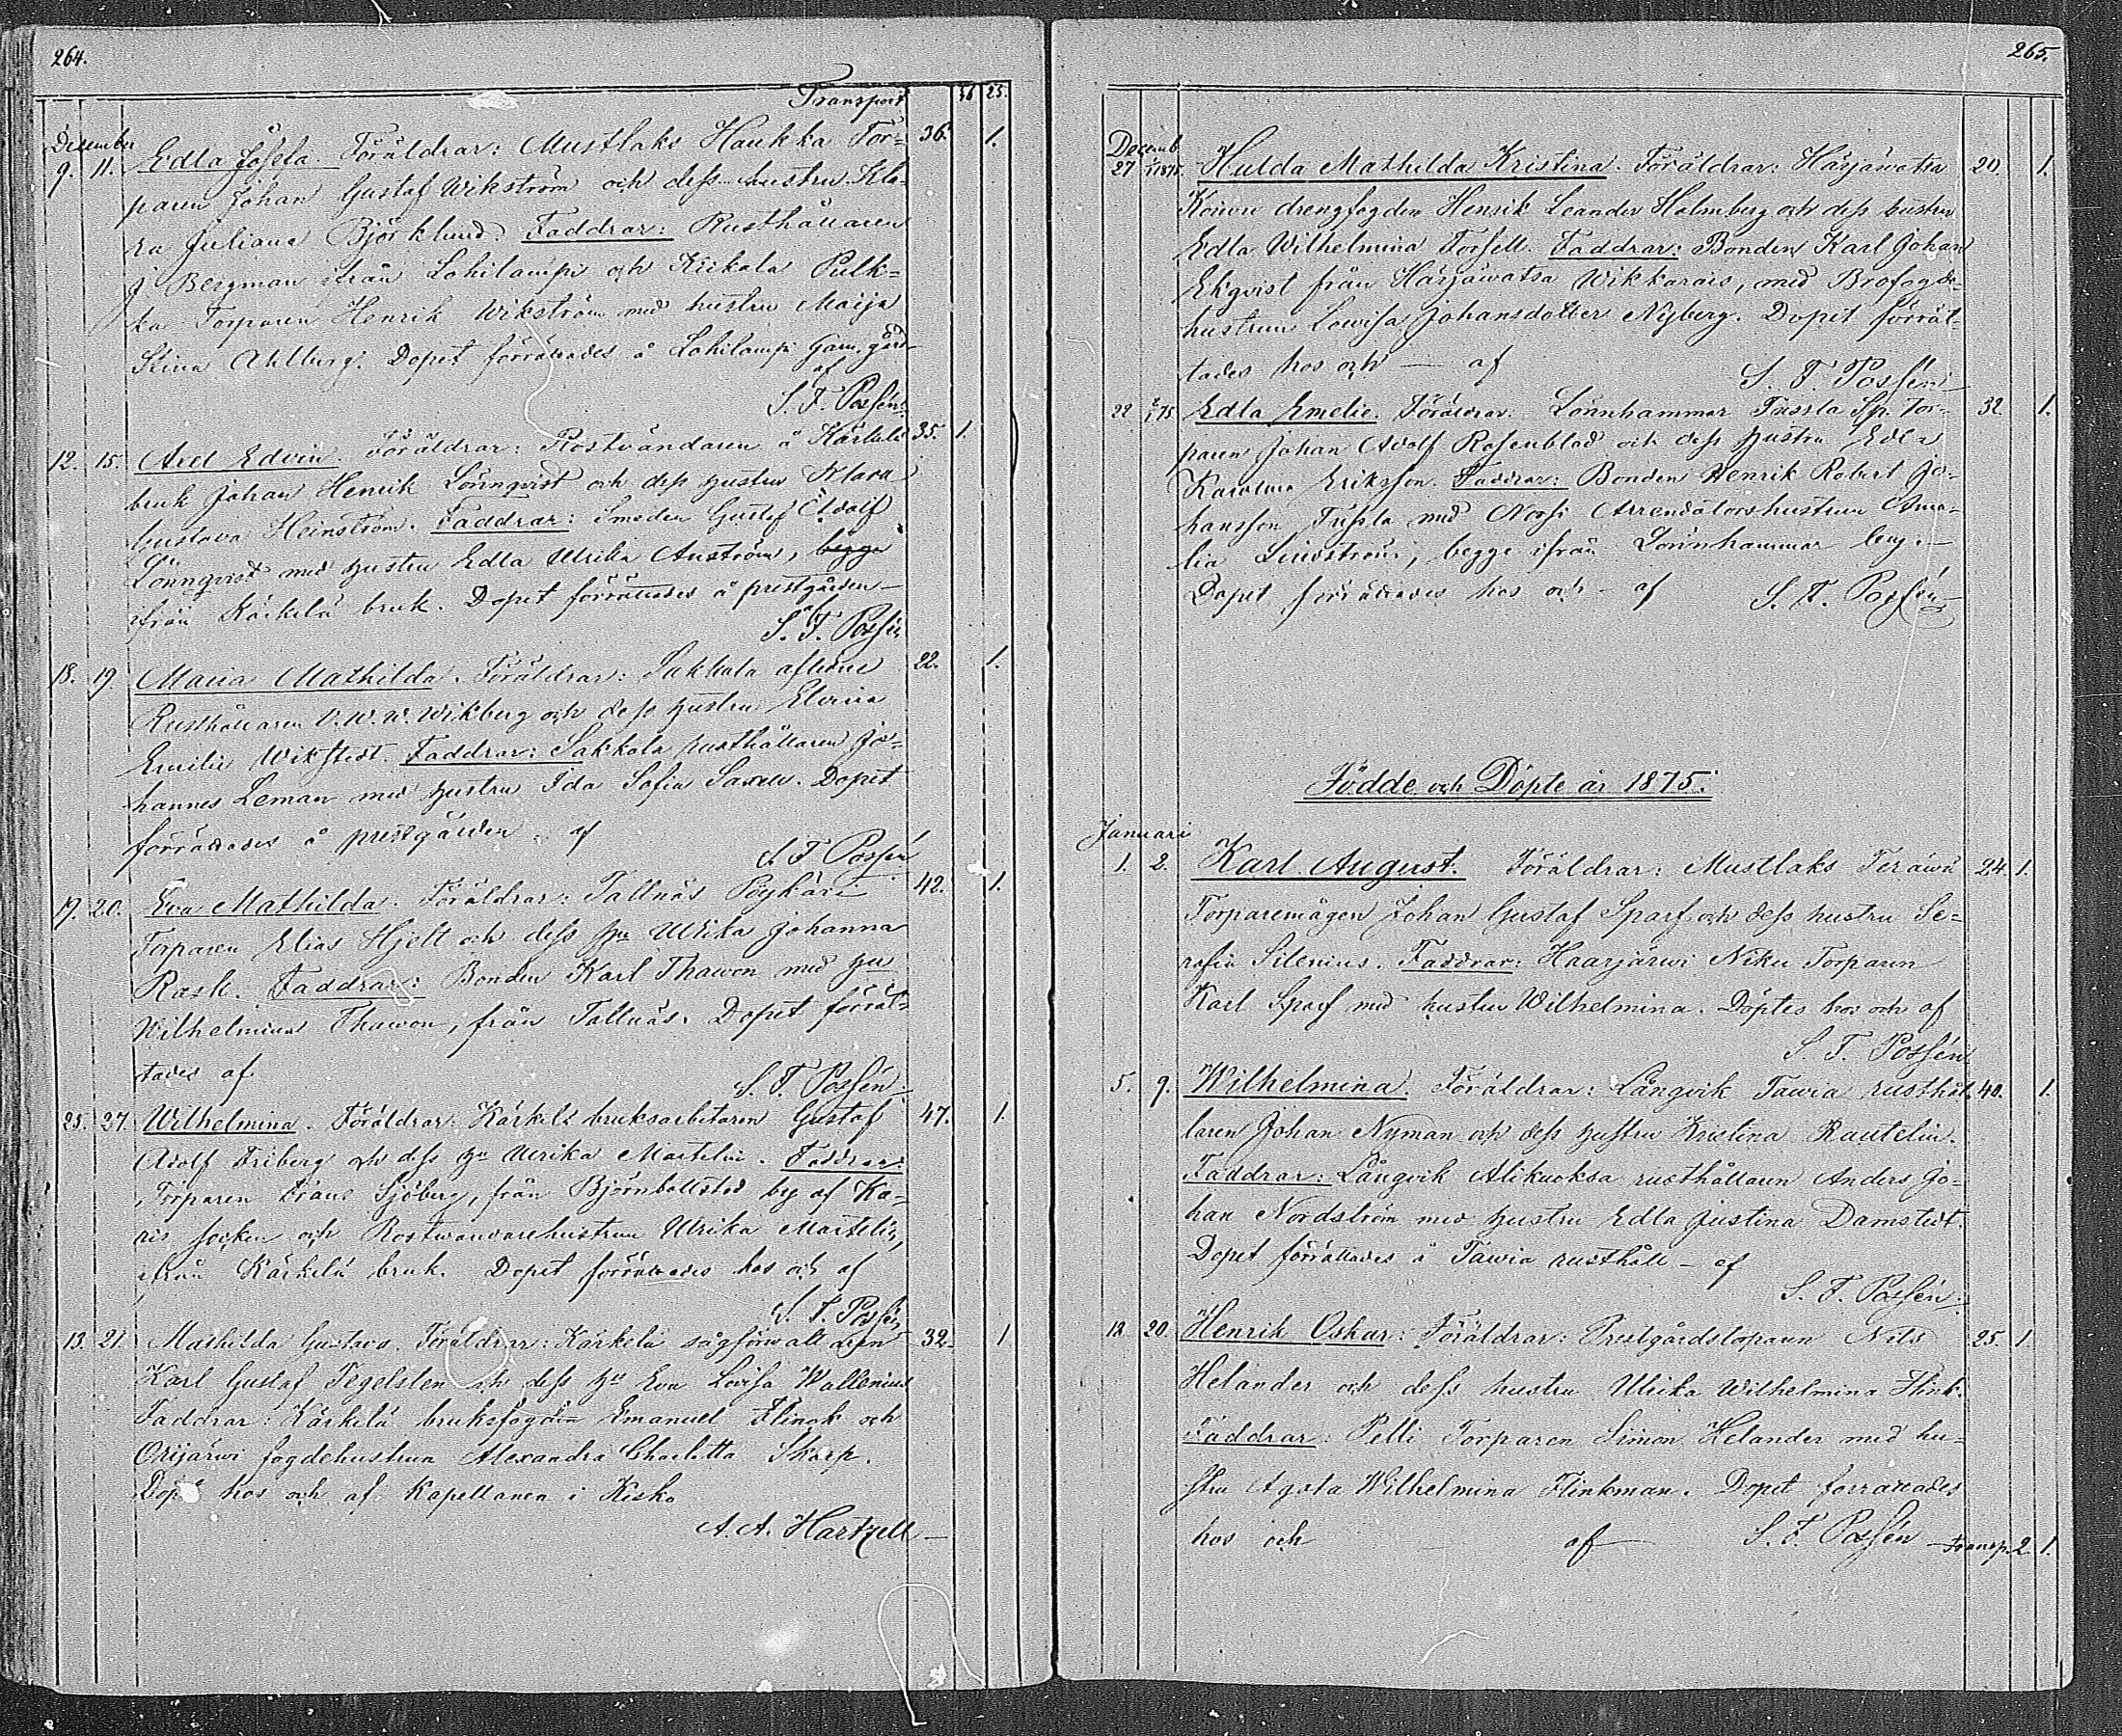 264.
Transport 36 25.
December
9. 11. Edla Josefa. Föräldrar: Mustlaks Haukka Tor- 36. 1.
paren Johan Gustaf Wikström och dess hustru Kla-
ra Juliana Björklund. Faddrar: Rusthållaren
J. Bergman ifrån Lohilampi och Kiikala Pulk-
ka Torparen Henrik Wikström med hustru Maija
Stina Ahlburg. Dopet förrättades å Lohilampi Gam. gård
af
S. F. Possén.
12. 15. Axel Edvin. Föräldrar: Rostvändaren å Kärkelä 35. 1.
bruk Johan Henrik Lönnqvist och dess hustru Klara
Gustava Heinström. Faddrar: Smeden Gustaf Adolf
Lönnqvist med hustru Edla Ulrika Anström, begge
ifrån Kärkelä bruk. Dopet förrättades å prestgården –
af
S. F. Possén
18. 19. Maria Mathilda. Föräldrar: Sakkola 22. 1.
Rusthållaren V. W. W. Wikberg och dess hustru Elvira
Emilie Wikstedt. Faddrar: Sakkola rusthållaren Jo-
hannes Leman med hustru Ida Sofia Saxell. Dopet
förrättades å prestgården af
S. F. Possén
19. 20. Eva Mathilda. Föräldrar: Tallnäs Pöyhäri 42. 1.
Torparen Elias Hjelt och dess hu Ulrika Johanna
Rask. Faddrar: Bonden Karl Thawon med hu
Wilhelmina Thawon, från Tallnäs. Dopet förrät-
tades af
S. F. Possén.
25. 27. Wilhelmina. Föräldrar: Kärkelä bruksarbetaren Gustaf 47. 1.
Adolf Friberg och dess hu Ulrika Martelin. Faddrar:
Torparen Frans Sjöberg, från Björnbollstad by af Ka-
ris socken och Rostwändarehustrun Ulrika Martelin,
ifrån Kärkelä bruk. Dopet förrättades hos och af
S. F. Possén
13. 21. Mathilda Gustava. Föräldrar: Kärkelä sågförvaltaren 32. 1
Karl Gustaf Tegelsten och dess hu Eva Lovisa Wallenius
Faddrar: Kärkelä bruksfogden Emanuel Flinck och
Orijärwi fogdehustrun Alexandra Charlotta Skarp.
Döpt hos och af Kapellanen i Kisko
A. A. Hartzell –
265.
Decemb.
27 1/1 1875. Hulda Mathilda Kristina. Föräldrar: Harjawatsa 20. 1.
Koiwu drengfogden Henrik Leander Holmberg och dess hustru
Edla Wilhelmina Forsell. Faddrar: Bonden Karl Johan
Ekqvist från Harjawatsa Wikkarais, med Brofogde-
hustrun Lowisa Johansdotter Nyberg. Dopet förrät-
tades hos och – af
S. F. Possén
22. 2/1 75 Edla Emelie. Föräldrar: Lönnhammar Tussla Sp. Tor- 32. 1.
paren Johan Adolf Rosenblad och dess hustru Edla
Karolina Eriksson. Faddrar: Bonden Henrik Robert Jo-
hansson Tussla med Norsi Arrendatorshustrun Ama-
lia Lindström, begge ifrån Lönnhammar by. –
Dopet förrättades hos och – af S. F. Possén
Födde och Döpte år 1875.
Januari
1. 2. Karl August. Föräldrar: Mustlaks Teräwä 24. 1.
Torparemågen Johan Gustaf Sparf och dess hustru Se-
rafia Silenius. Faddrar: Haarjärwi Niku Torparen
Karl Sparf med hustru Wilhelmina. Döptes hos och af
S. F. Possén
5. 9. Wilhelmina. Föräldrar: Långvik Tawia rusthål- 40. 1.
laren Johan Nyman och dess hustru Kristina Rautelin.
Faddrar: Långvik Alikuoksa rusthållaren Anders Jo-
han Nordström med hustru Edla Justina Damstedt.
Dopet förrättades å Tawia rusthåll – af
S. F. Possén.
18 20. Henrik Oskar: Föräldrar: Prestgårdstorparen Nils 25. 1.
Helander och dess hustru Ulrika Wilhelmina Flink.
Faddrar: Pelli Torparen Simon Helander med hu-
stru Agata Wilhelmina Flinkman. Dopet förrättades
hos och af S. F. Possén – Transp. 2. 1.